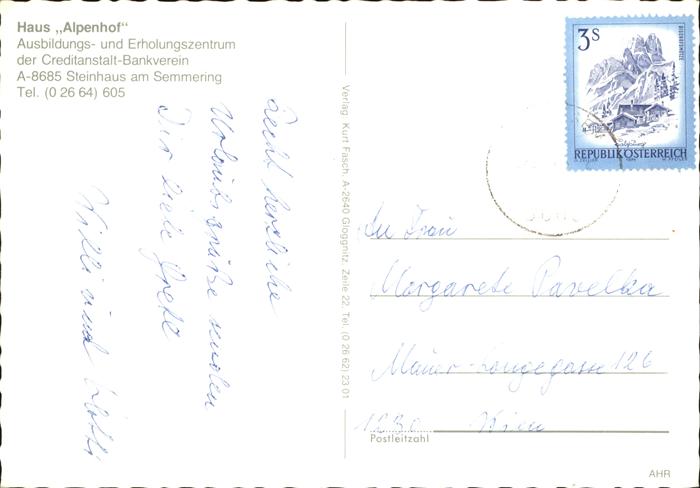 Haus „Alpenhof“
Ausbildungs- und Erholungszentrum
der Creditanstalt-Bankverein
A-8685 Steinhaus am Semmering
Tel. (0 26 64) 605
Recht herzliche
Urlaubsgrüße senden
Dir liebe Gretl
Willi und
Verlag: Kurt Fasch, A-2640 Gloggnitz, Zeile 22, Tel. (0 26 62) 23 01
3S
REPUBLIK ÖSTERREICH
An Frau
Margarete Pavelka
Mauer-Langegasse 126
1230 Wien
Postleitzahl
AHR